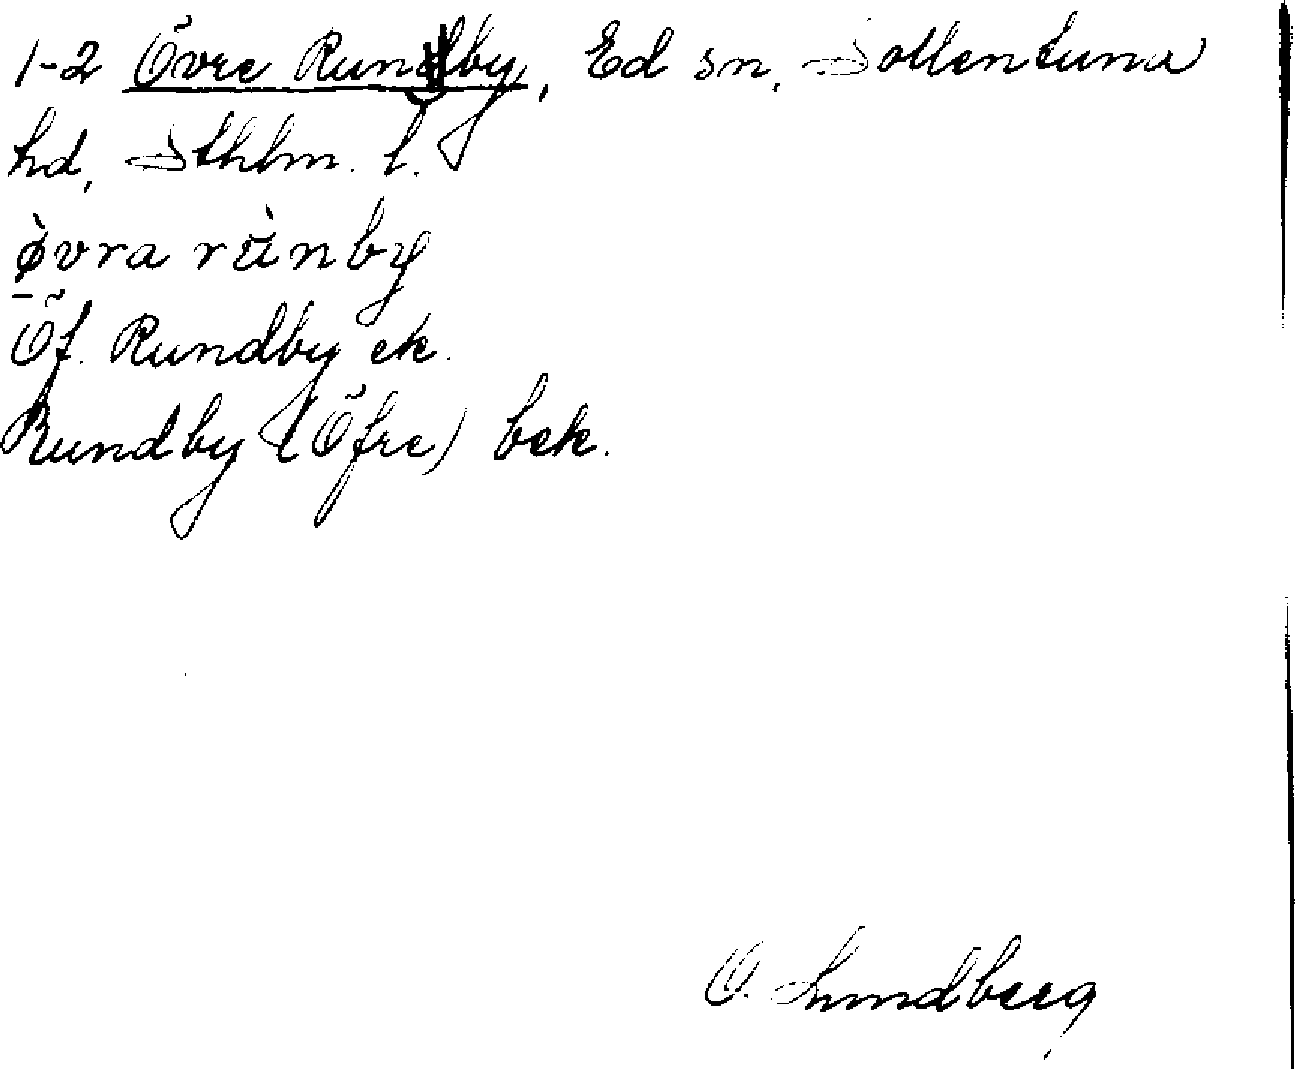 1-2 Övre Rundby, Ed sn, Sollentuna
hd, Sthlm. l.
Öf. Rundby ek.
Rundby (Öfre) bek.
O. Lundberg